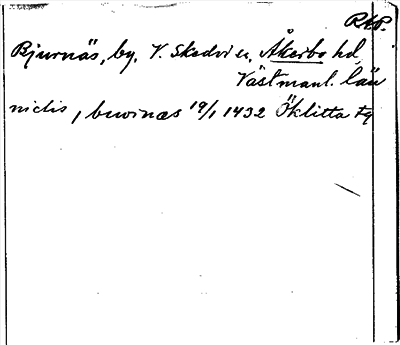 RAP.
Bjurnäs, by, V. Skedvi sn, Åkerbo hd,
Västmanl. län
nictis, burvinæs 19/1 1432 Öklitta fq